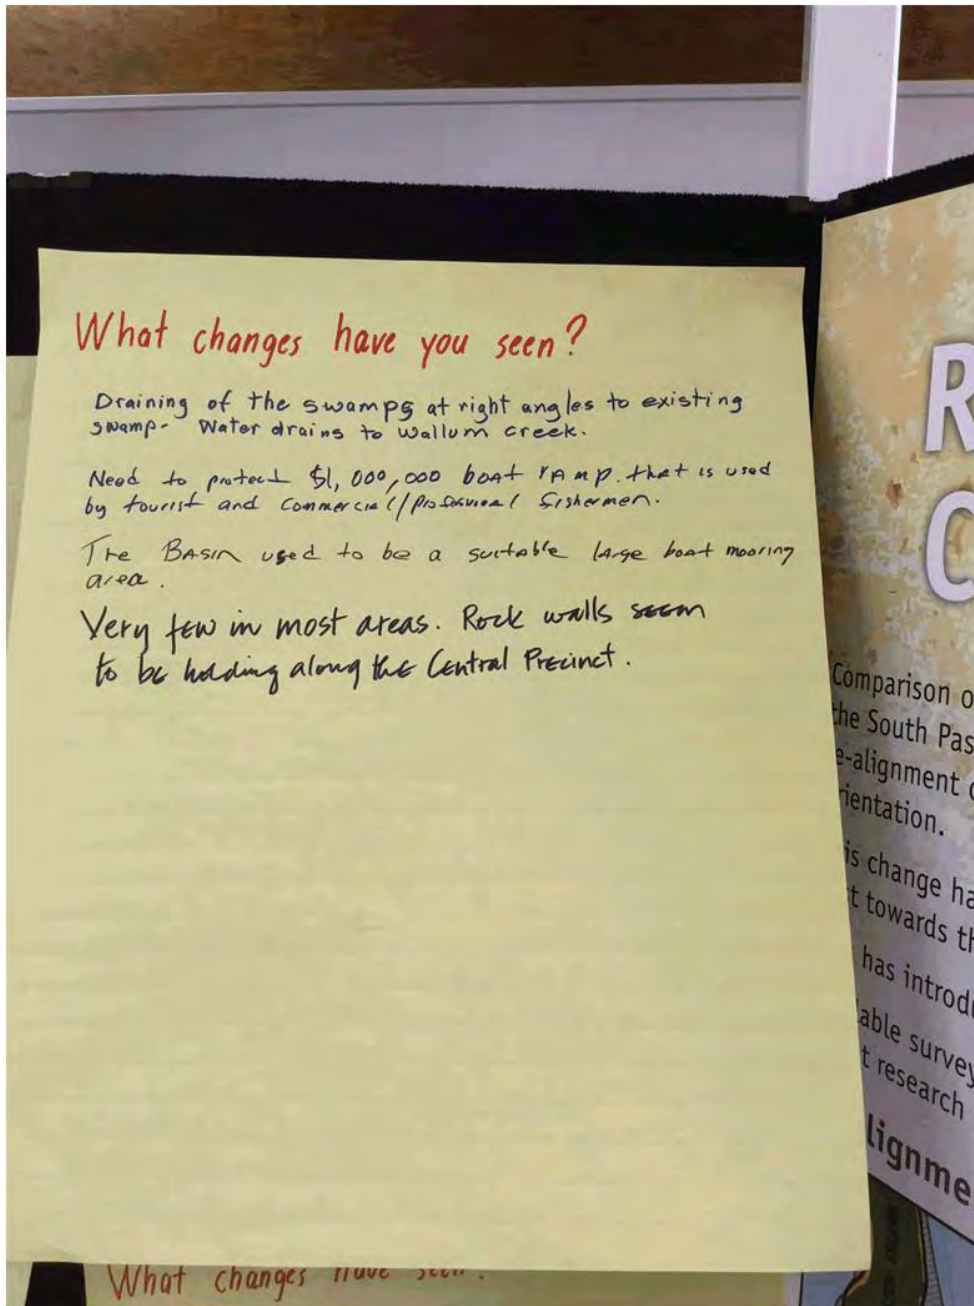 What changes have you seen?
Draining of the swamps at right angles to existing
swamp- Water drains to Wallum creek.
Need to protect $1,000,000 boat ramp. that is used
by tourist and Commercial/Professional fishermen.
The BASIN used to be a suitable large boat mooring
area.
Very few in most areas. Rock walls seem
to be holding along the Central Precinct.
What changes have seen?
R
C
Comparison o
the South Pas
e-alignment
rientation.
is change ha
t towards th
has introd
able survey
t research
lignme